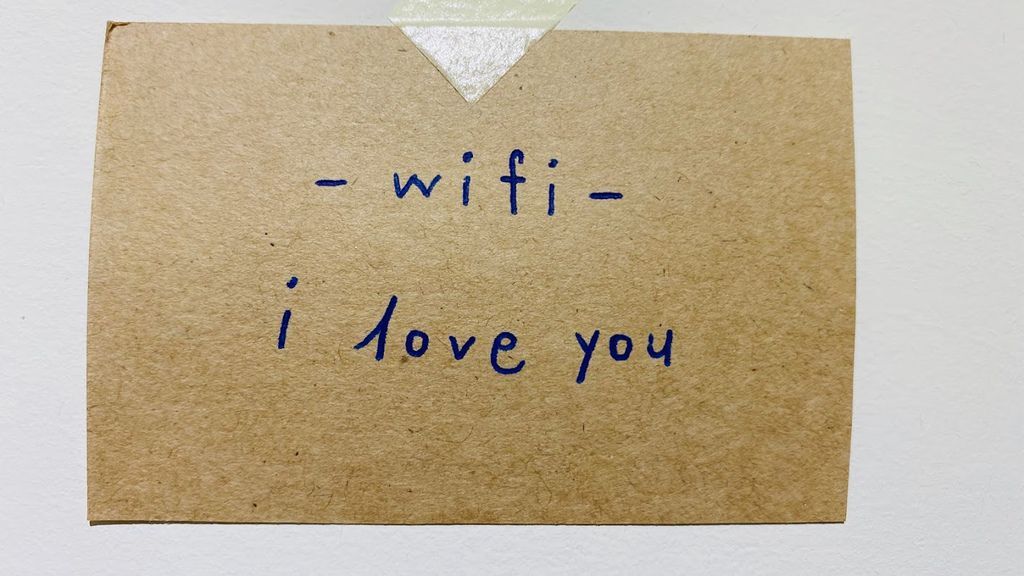 - wifi -
i love you